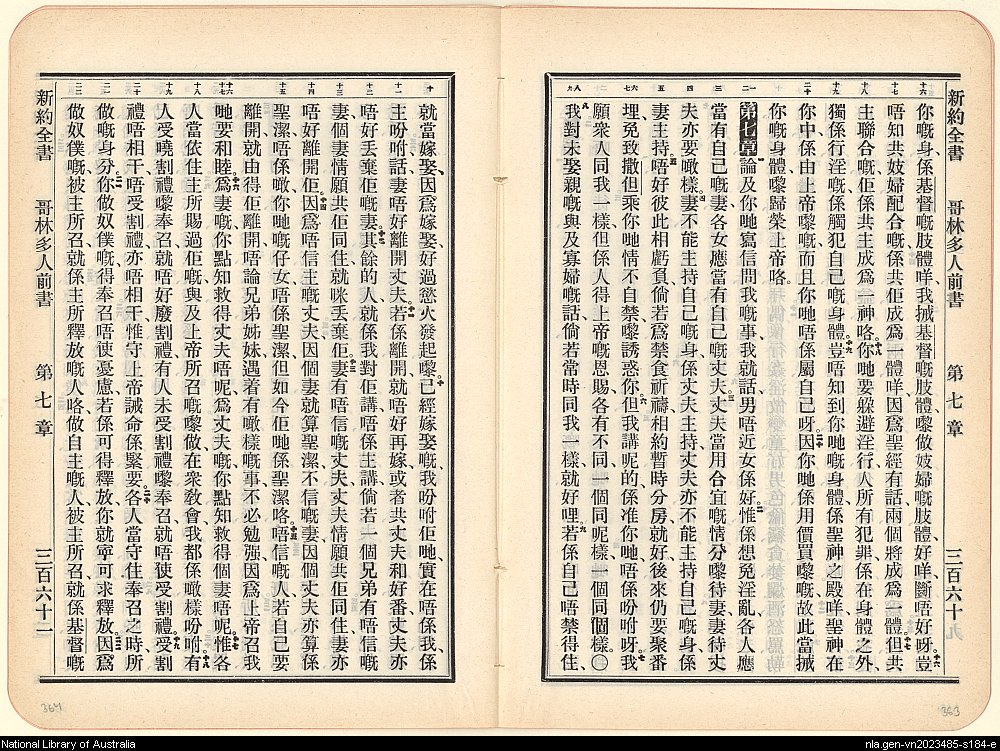 新約全書 哥林多人前書 第七章 三百六十
你嘅身係基督嘅肢體咩我搣基督嘅肢體嚟做妓婦嘅肢體、好咩、斷唔好呀。豈
唔知共妓婦配合嘅、係共佢成爲一體咩、因爲聖經有話、兩個將成爲一體。但共
主聯合嘅、佢係共主成爲一神咯。你哋要躱避淫行、人所有犯罪、係在身體之外、
獨係行淫嘅、係觸犯自己嘅身體。豈唔知到你哋嘅身體、係聖神之殿咩、聖神在
你中、係由上帝嚟嘅、而且你哋唔係屬自己呀。因你哋係用價買嚟嘅、故此當搣
你嘅身體嚟歸榮上帝咯。
第七章 論及你哋寫信問我嘅事、我就話、男唔近女係好。惟係想免淫亂、各人應
當有自己嘅妻、各女應當有自己嘅丈夫。丈夫當用合宜嘅情分嚟待妻、妻待丈
夫亦要噉樣。妻不能主持自己嘅身、係丈夫主持、丈夫亦不能主持自己嘅身、係
妻主持。唔好彼此相虧負、倘若爲禁食祈禱、相約暫時分房就好、後來仍要聚番
埋、免致撒但乘你哋情不自禁、嚟誘惑你。但我講呢的、係准你哋、唔係吩咐呀。我
願衆人同我一樣、但係人得上帝嘅恩賜、各有不同、一個同呢樣、一個同個樣。〇
我對未娶親嘅、與及寡婦嘅話、倘若常時同我一樣、就好哩。若係自己唔禁得住、
新約全書 哥林多人前書 第七章 三百六十二
就當嫁娶、因爲嫁娶好過慾火發起嚟。已經嫁娶嘅、我吩咐佢哋、實在唔係我、係
主吩咐話、妻唔好離開丈夫。若係離開、就唔好再嫁、或者共丈夫和好番、丈夫亦
唔好丟棄佢嘅妻。其餘的人、就係我對佢講、唔係主講、倘若一個兄弟有唔信嘅
妻、個妻情願共佢同住、就咪丟棄佢。妻有唔信嘅丈夫、丈夫情願共佢同住、妻亦
唔好離開佢。因爲唔信主嘅丈夫、因個妻就算聖潔、不信嘅妻、因個丈夫亦算係
聖潔、唔係噉、你哋嘅仔女唔係聖潔、但如今佢哋係聖潔咯。唔信嘅人、若自己要
離開、就由得佢離開、唔論兄弟姊妹、遇着有噉樣嘅事、不必勉强、因爲上帝召我
哋要和睦。爲妻嘅、你點知救得丈夫唔呢、爲丈夫嘅、你點知救得個妻唔呢。惟各
人當依住主所賜過佢嘅、與及上帝所召嘅嚟做、在衆敎會我都係噉樣吩咐。有
人受曉割禮嚟奉召、就唔好廢割禮、有人未受割禮嚟奉召、就唔使受割禮。受割
禮唔相干、唔受割禮、亦唔相干、惟守上帝誡命係緊要。各人當守住奉召之時所
做嘅身分。你做奴僕嘅得奉召、唔使憂慮、若係可得釋放、你就寧可求釋放。因爲
做奴僕嘅、被主所召、就係主所釋放嘅人咯、做自主嘅人、被主所召、就係基督嘅
364
363
National Library of Australia
nla.gen-vn2023485-s184-e